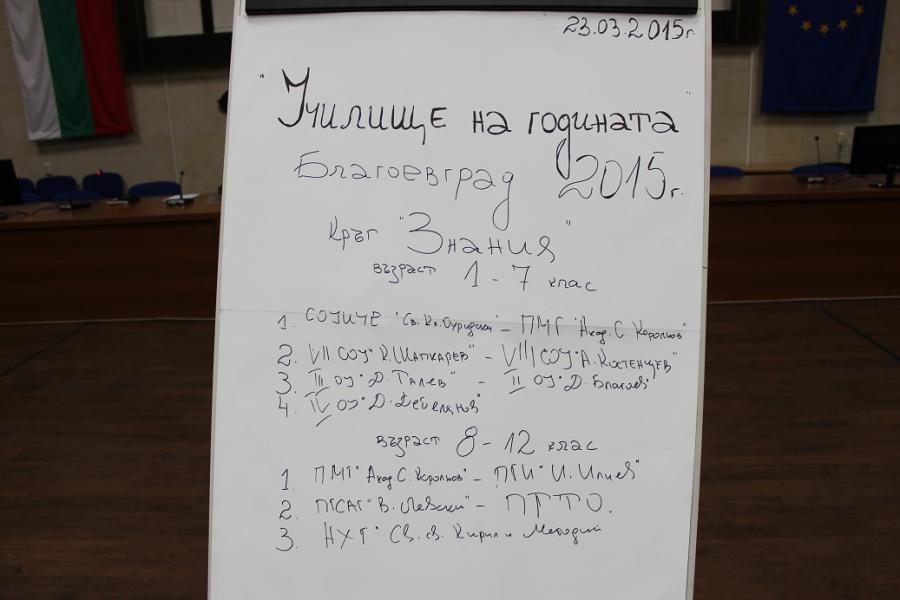 23.03.2015г.
"Училище на годината"
Благоевград 2015г.
Кръг "Знания"
възраст 1-7 клас
1. СОУИЧЕ "Св. Кл. Охридски" - ПМГ "Акад. С. Корольов"
2. VII СОУ "К. Шапкарев" - VIII СОУ "А. Костенцев"
3. III ОУ "Д. Талев" - II ОУ "Д. Благоев"
4. IV ОУ "Д. Дебелянов"
възраст 8-12 клас
1. ПМГ "Акад. С. Корольов" - ПГИ "И. Илиев"
2. ПГСАГ "В. Левски" - ПГТО.
3. НХГ "Св. св. Кирил и Методий